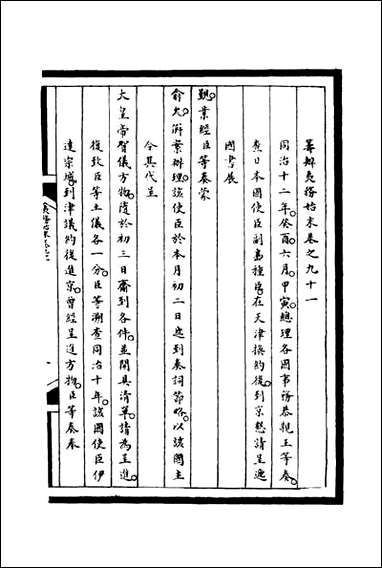 籌辦夷務始末卷之九十一
同治十二年癸酉六月甲寅總理各國事務恭親王等奏
竊日本國使臣副島種臣在天津換約後到京懇請呈遞
國書展
覲業經臣等奏蒙
俞允辦理該使臣於本月初二日送到奏詞節略以該國主
令其代呈
大皇帝贄儀方物復於初三日齎到各件並開具清單請為呈進
復致臣等土儀各一分臣等溯查同治十年該國使臣伊
達宗城到津議約後進京曾經呈進方物臣等奏奉